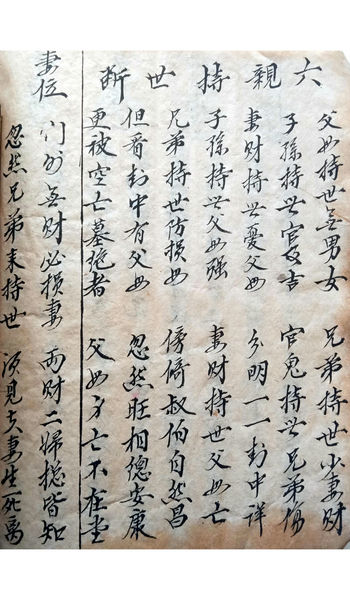 六親持世断
父母持世無男女 兄弟持世少妻財
子孫持世官 官鬼持世兄弟傷
妻財持世憂父母 分明一一卦中詳
子孫持世父母强 妻財持世父母亡
兄弟持世防損母 傍倚叔伯自然昌
但看卦中有父母 忽然旺相 安康
更被空亡墓絶者 父母身亡不在堂
妻位
無财必損妻 兩财二婦揔皆知
忽然兄弟来持世 須見夫妻生死离